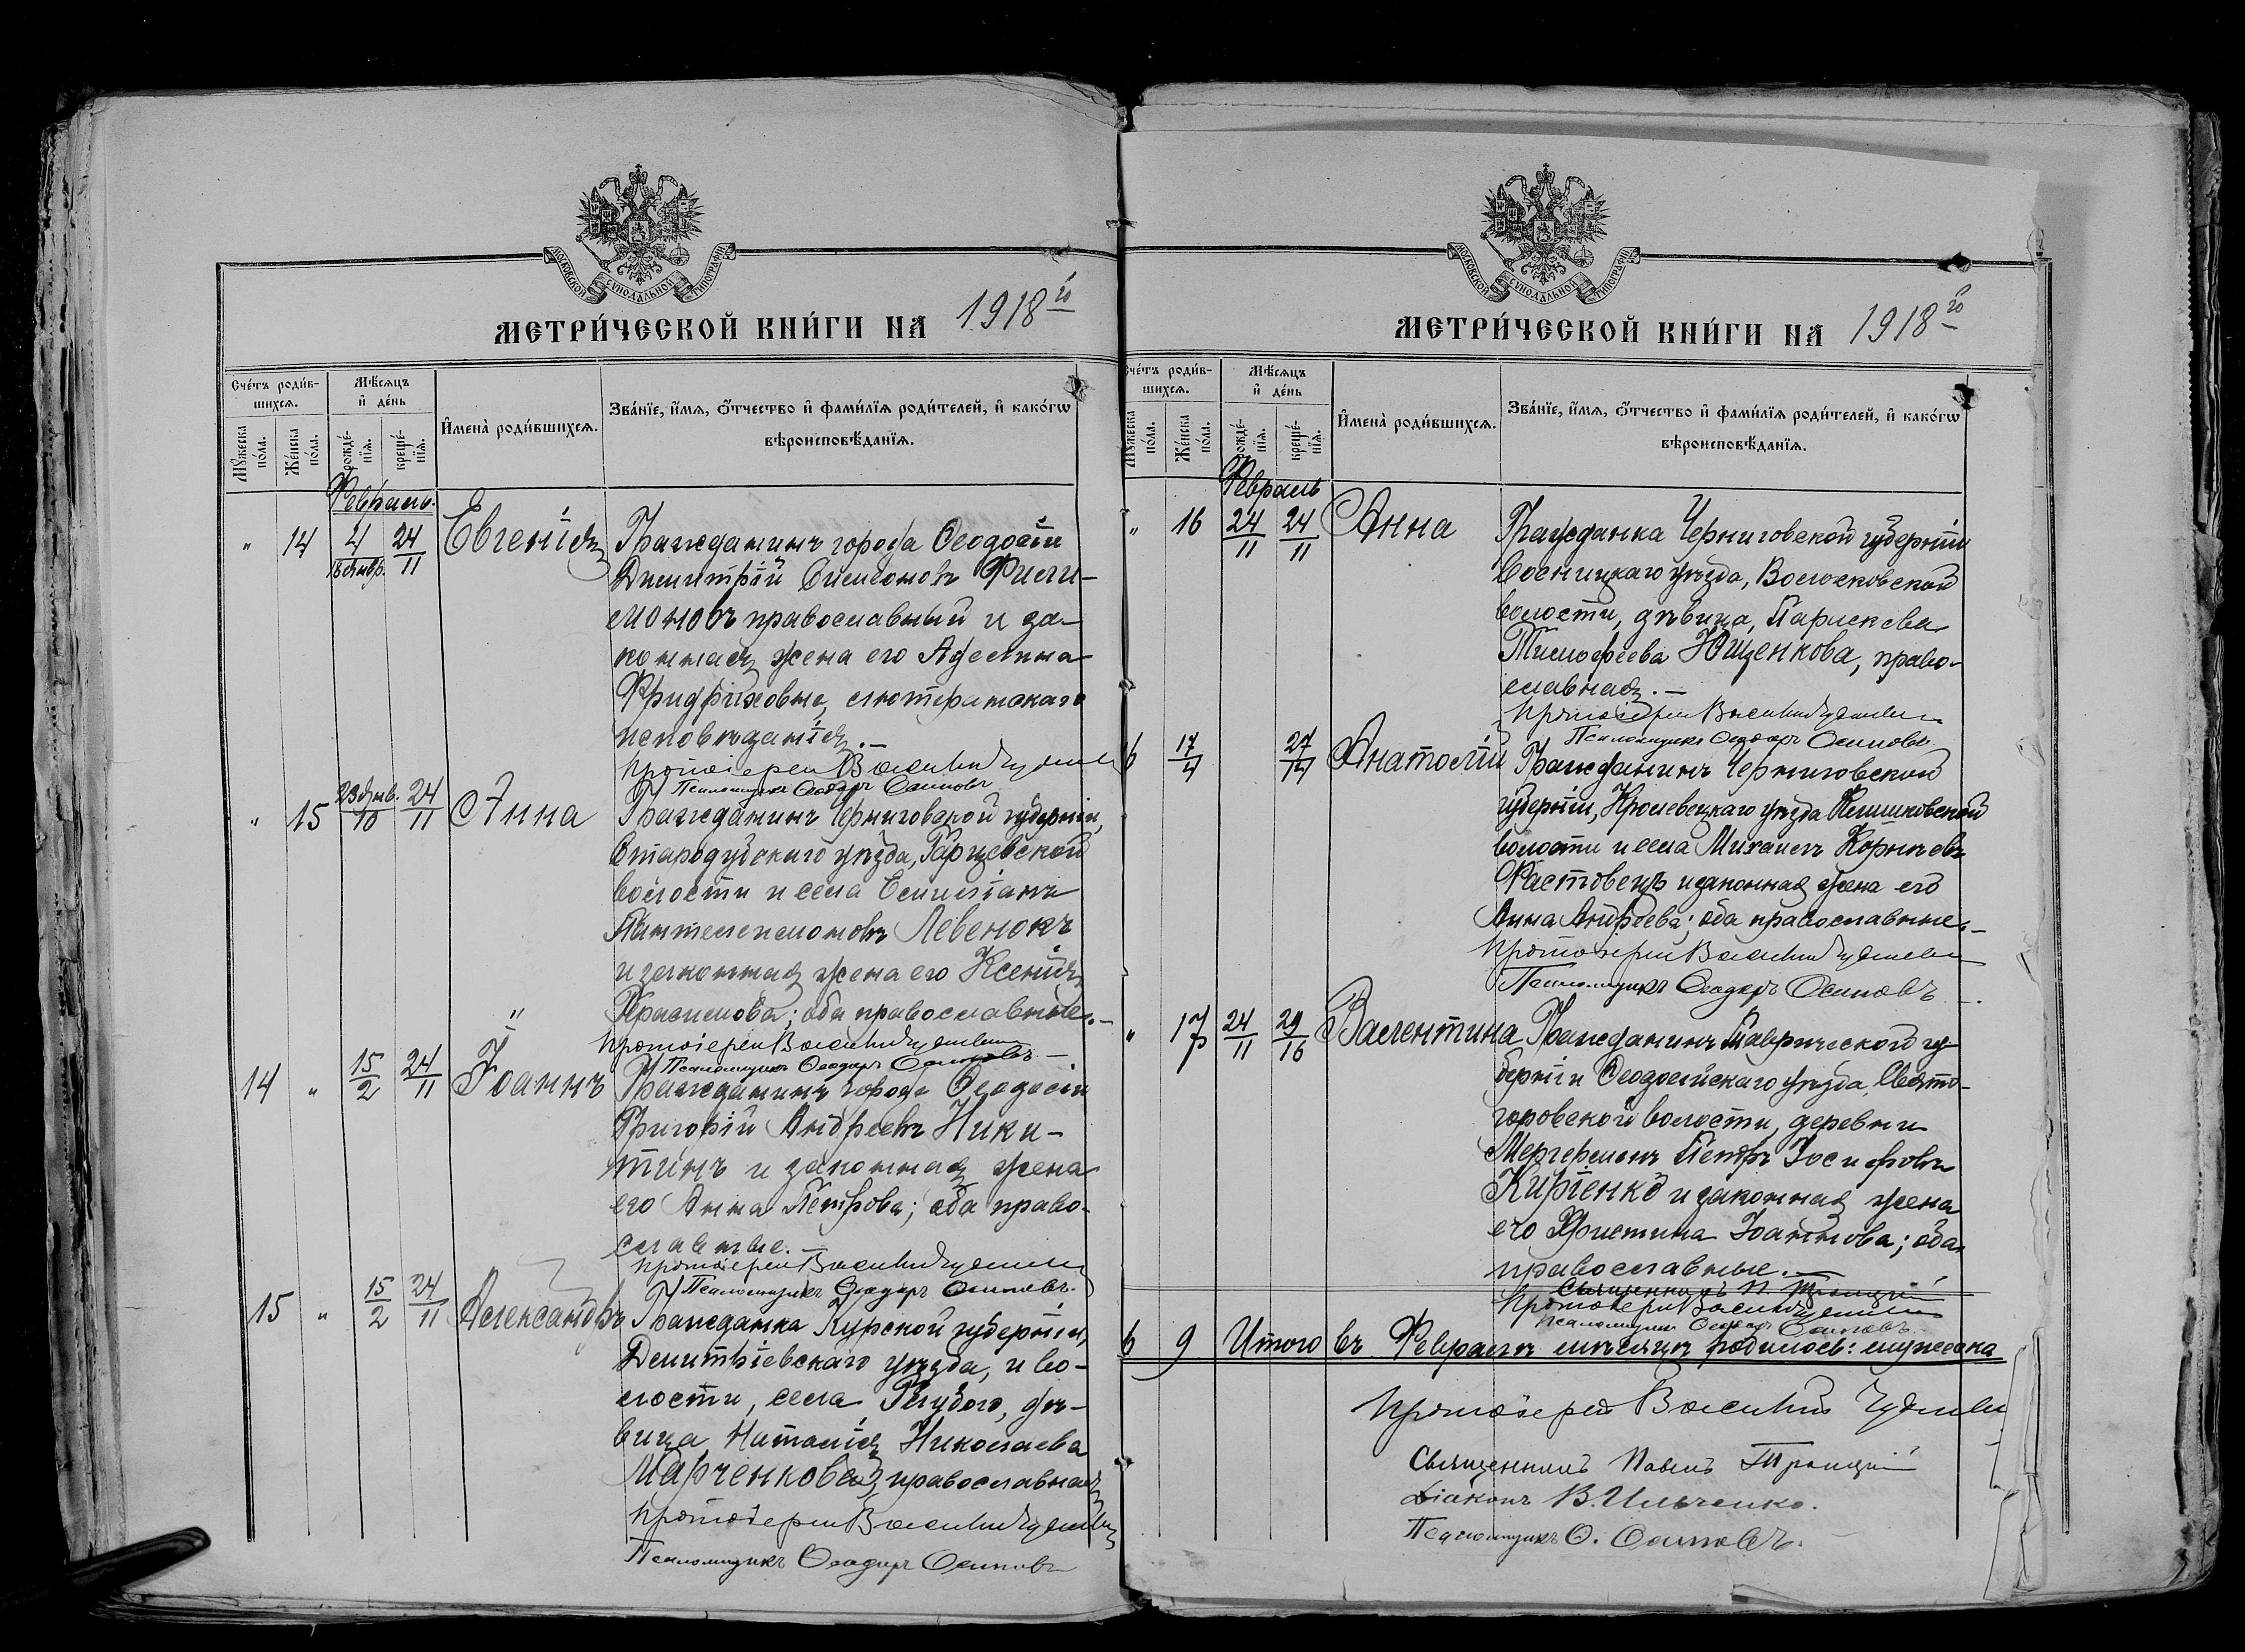 МОСКОВСКОЙ СѴНОДАЛЬНОЙ ТИПОГРАФІИ
МЕТРИ́ЧЕСКОЙ КНИ́ГИ НА 1918го
Сче́тъ роди́в-
шихсѧ.
Мѣ́сяцъ
и҆ де́нь
И҆мена̀ роди́вшихсѧ.
Зва́нїе, и҆́мѧ, ѻ҆́тчество и҆ фами́лїѧ роди́телей, и҆ како́гѡ
вѣроисповѣ́данїѧ.
Мꙋ́жеска
по́ла.
Же́нска
по́ла.
рожде́-
нїѧ.
креще́-
нїѧ.
Февраль.
" 14 4/18 янвр. 24/11 Евгенія Гражданинъ города Ѳеодосіи
Димитрій Симеоновъ Фили-
моновъ православный и за-
конная жена его Аделина
Фридриховна, лютеранскаго
исповѣданія.—
Протоіерей Василий
Псаломщикъ Ѳеодоръ Осиповъ
" 15 29 янв./10 24/11 Анна Гражданинъ Черниговской губерніи,
Стародубскаго уѣзда, Гарцевской
волости и села Емиліанъ
Пантелеимоновъ Левенокъ
и законная жена его Ксенія
Герасимова; оба православные.—
Протоіерей Василий
Псаломщикъ Ѳеодоръ Осиповъ —
14 " 15/2 24/11 Іоаннъ Гражданинъ города Ѳеодосіи
Григорій Андреевъ Ники-
тинъ и законная жена
его Анна Петрова; оба право-
славные.—
Протоіерей Василий
Псаломщикъ Ѳеодоръ Осиповъ.
15 " 15/2 24/11 Александръ Гражданка Курской губерніи,
Димитріевскаго уѣзда, и во-
лости, села Глубого, дѣ-
вица, Наталія Николаева
Марченкова, православная
Протоіерей Василий
Псаломщикъ Ѳеодоръ Осиповъ
МОСКОВСКОЙ СѴНОДАЛЬНОЙ ТИПОГРАФІИ
МЕТРИ́ЧЕСКОЙ КНИ́ГИ НА 1918го
Сче́тъ роди́в-
шихсѧ.
Мѣ́сяцъ
и҆ де́нь
И҆мена̀ роди́вшихсѧ.
Зва́нїе, и҆́мѧ, ѻ҆́тчество и҆ фами́лїѧ роди́телей, и҆ како́гѡ
вѣроисповѣ́данїѧ.
Мꙋ́жеска
по́ла.
Же́нска
по́ла.
рожде́-
нїѧ.
креще́-
нїѧ.
Февраль
" 16 24/11 24/11 Анна Гражданка Черниговской губерніи
Сосницкаго уѣзда, Волосковской
волости, дѣвица, Параскева
Тимофеева Ющенкова, право-
славная.—
Протоіерей Василий
Псаломщикъ Ѳеодоръ Осиповъ.
6 17/4 27/14 Анатолій Гражданинъ Черниговской
губерніи, Кролевецкаго уѣзда Клишковской
волости и села Михаилъ Корнѣевъ
Фастовецъ и законная жена его
Анна Андреева; оба православные.—
Протоіерей Василий
Псаломщикъ Ѳеодоръ Осиповъ
" 17 24/11 29/16 Валентина Гражданинъ Таврической гу-
берніи Ѳеодосійскаго уѣзда, Свято-
горовской волости, деревни
Петръ Іосифовъ
Киріенко и законная жена
его Христина Іоаннова; оба
православные.—
Священникъ П. Троицкій
Протоіерей Василий
Псаломщикъ Ѳеодоръ Осиповъ
6 9 Итого въ Февралѣ мѣсяцѣ родилось: мужеска
Протоіерей Василий
Священникъ Павелъ Троицкій
Діаконъ В. Ильченко.
Псаломщикъ Ѳ. Осиповъ.